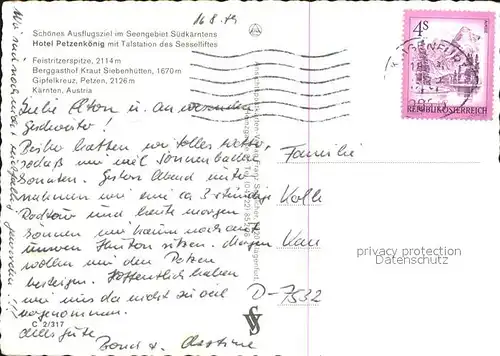 16.8.79
Schönes Ausflugsziel im Seengebiet Südkärntens
Hotel Petzenkönig mit Talstation des Sesselliftes
Feistritzerspitze, 2114 m
Berggasthof Kraut Siebenhütten, 1670 m
Gipfelkreuz, Petzen, 2126 m
Kärnten, Austria
Liebe Eltern u.
Geschwister!
Bisher hatten wir tolles Wetter,
sodaß wir viel Sonnenbaden
konnten. Gestern Abend unter
nahmen wir eine ca 3-stündige
Radtour und heute morgen
können wir kaum noch auf
unseren Hintern sitzen. Morgen
wollen wir den Petzen
besteigen. Hoffentlich haben
wir uns da nicht zu viel
vorgenommen.
Alles Gute
C 2/317
4S
REPUBLIK ÖSTERREICH
KLAGENFURT
Familie
Kolb
D-7532
privacy protection
Datenschutz